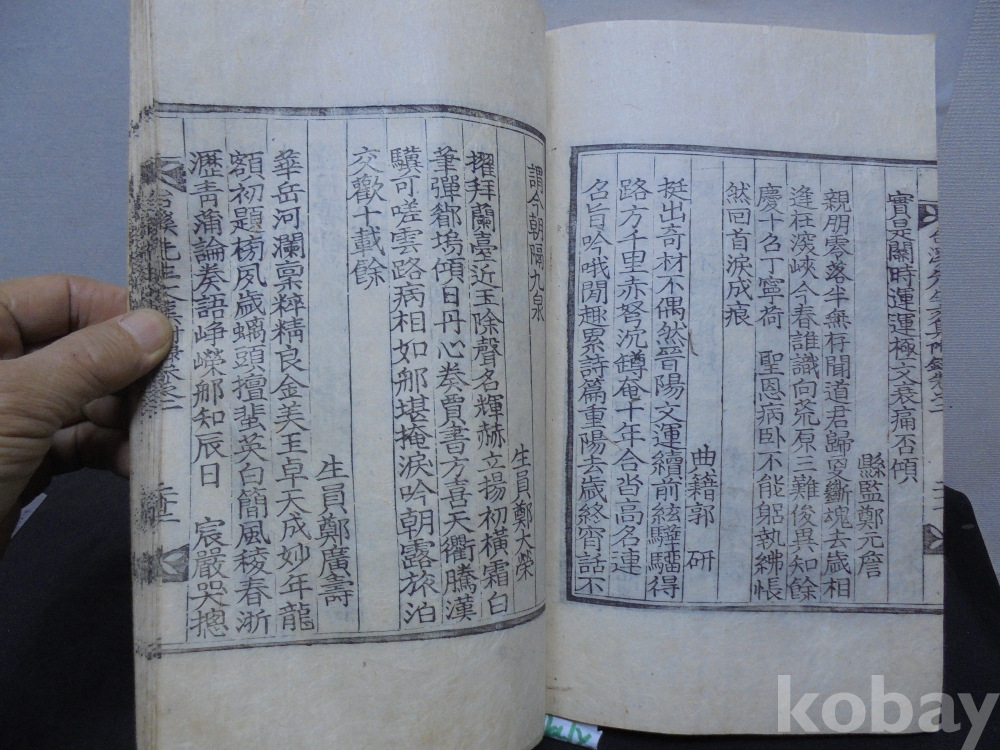 實是關時運運極文衰痛否傾
縣監鄭元詹
親朋零落半無存聞道君歸更斷魂去歲相
逢在深峽今春誰識向荒原三難俊異知餘
慶十名丁寧荷 聖恩病卧不能躬執紼悵
然回首淚成痕
典籍郭 研
挺出奇材不偶然晉陽文運續前絃驥騮得
路方千里赤弩沉鱒奄十年合沓高名連
名旨吟哦閒趣累詩篇重陽去歲終宵話不
謂今朝隔九泉
生員鄭大榮
擢拜蘭臺近玉除聲名輝赫立揚初橫霜白
筆彈鄒塢傾日丹心奏賈書方喜天衢騰漢
驥可嗟雲路病相如那堪掩淚吟朝露旅泊
交歡十載餘
生員鄭廣壽
華岳河瀾稟粹精良金美玉卓天成妙年龍
額初題榜夙歲螭頭擅蜚英白簡風稜春浙
瀝青蒲論奏語崢嶸那知辰日 宸嚴哭摠
先生文集
kobay